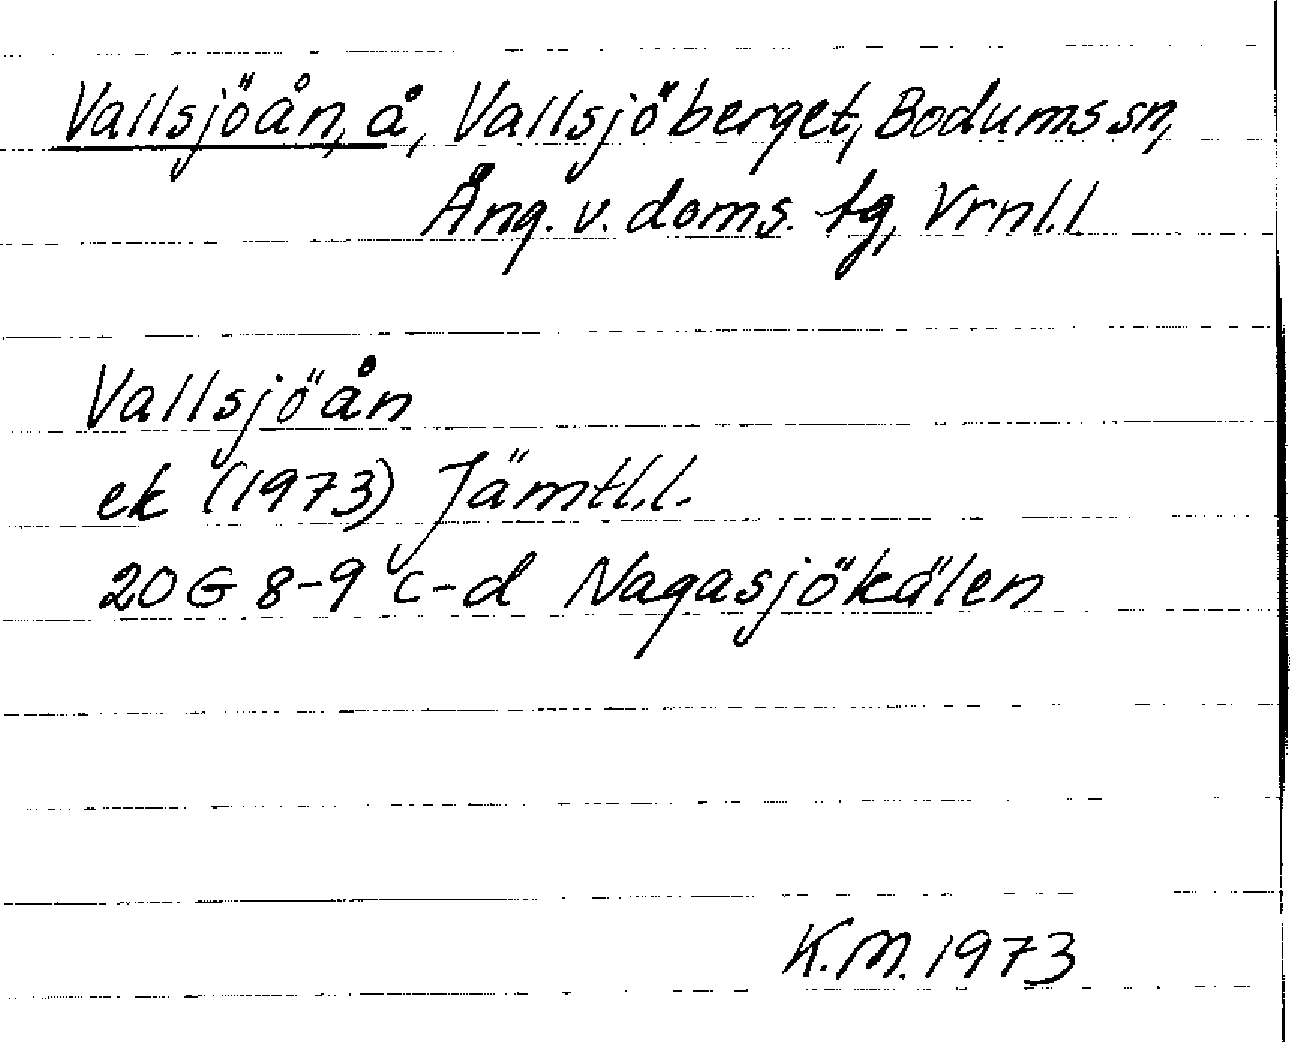 Vallsjöån, å, Vallsjöberget, Bodums sn,
Ång. v. doms. tg, Vrnl.l
Vallsjöån
ek (1973) Jämtl.l.
20 G 8-9 c-d Nagasjökälen
K.M. 1973